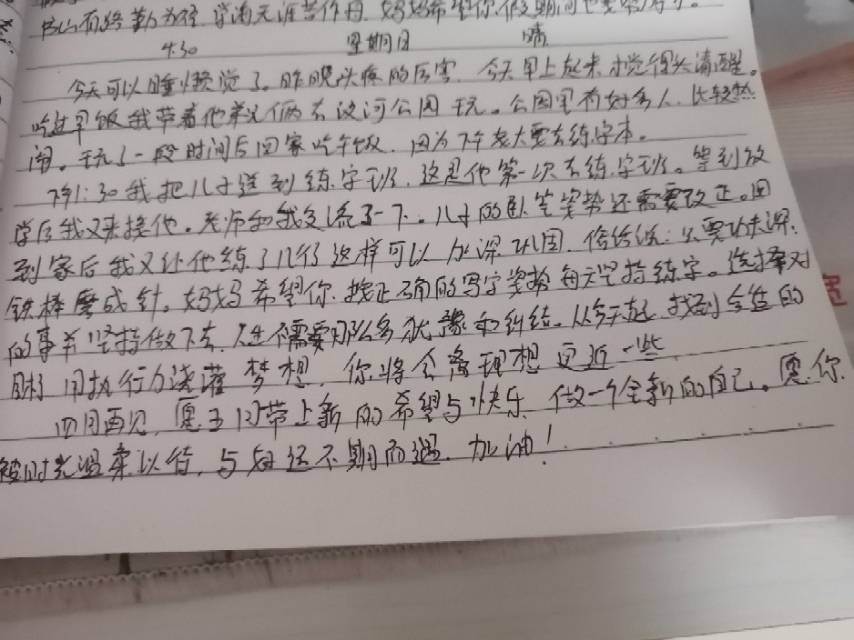 书山有路勤为径 学海无涯苦作舟 妈妈希望你假期间也要
4.30 星期日 晴
今天可以睡懒觉了。昨晚头疼的厉害 今天早上起来才觉得头清醒。
吃过早饭我带着他弟兄俩去沙河公园玩。公园里有好多人,比较热
闹。玩了一段时间后回家吃午饭,因为下午老大要去练字本。
下午1:30我把儿子送到练字班,这是他第一次去练字班。等到放
学后我又来接他。老师和我交流了一下。儿子的卧笔姿势还需要改正。回
到家后我又让他练了几行这样可以加深巩固。俗话说:只要功夫深,
铁棒磨成针。妈妈希望你 按正确的写字姿势 每天坚持练字。选择对
的事并坚持做下去,人生不需要那么多犹豫和纠结。从今天起,找到合适的
目标 用执行力浇灌梦想,你将会离理想更近一些
四月再见,愿五月带上新的希望与快乐 做一个全新的自己。愿你
被时光温柔以待,与好运不期而遇,加油!